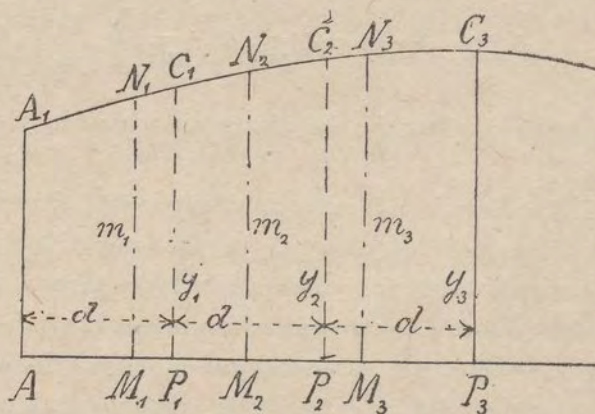 A₁ N₁ C₁ N₂ C₂ N₃ C₃
m₁ m₂ m₃
y₁ y₂ y₃
d d d
A M₁ P₁ M₂ P₂ M₃ P₃